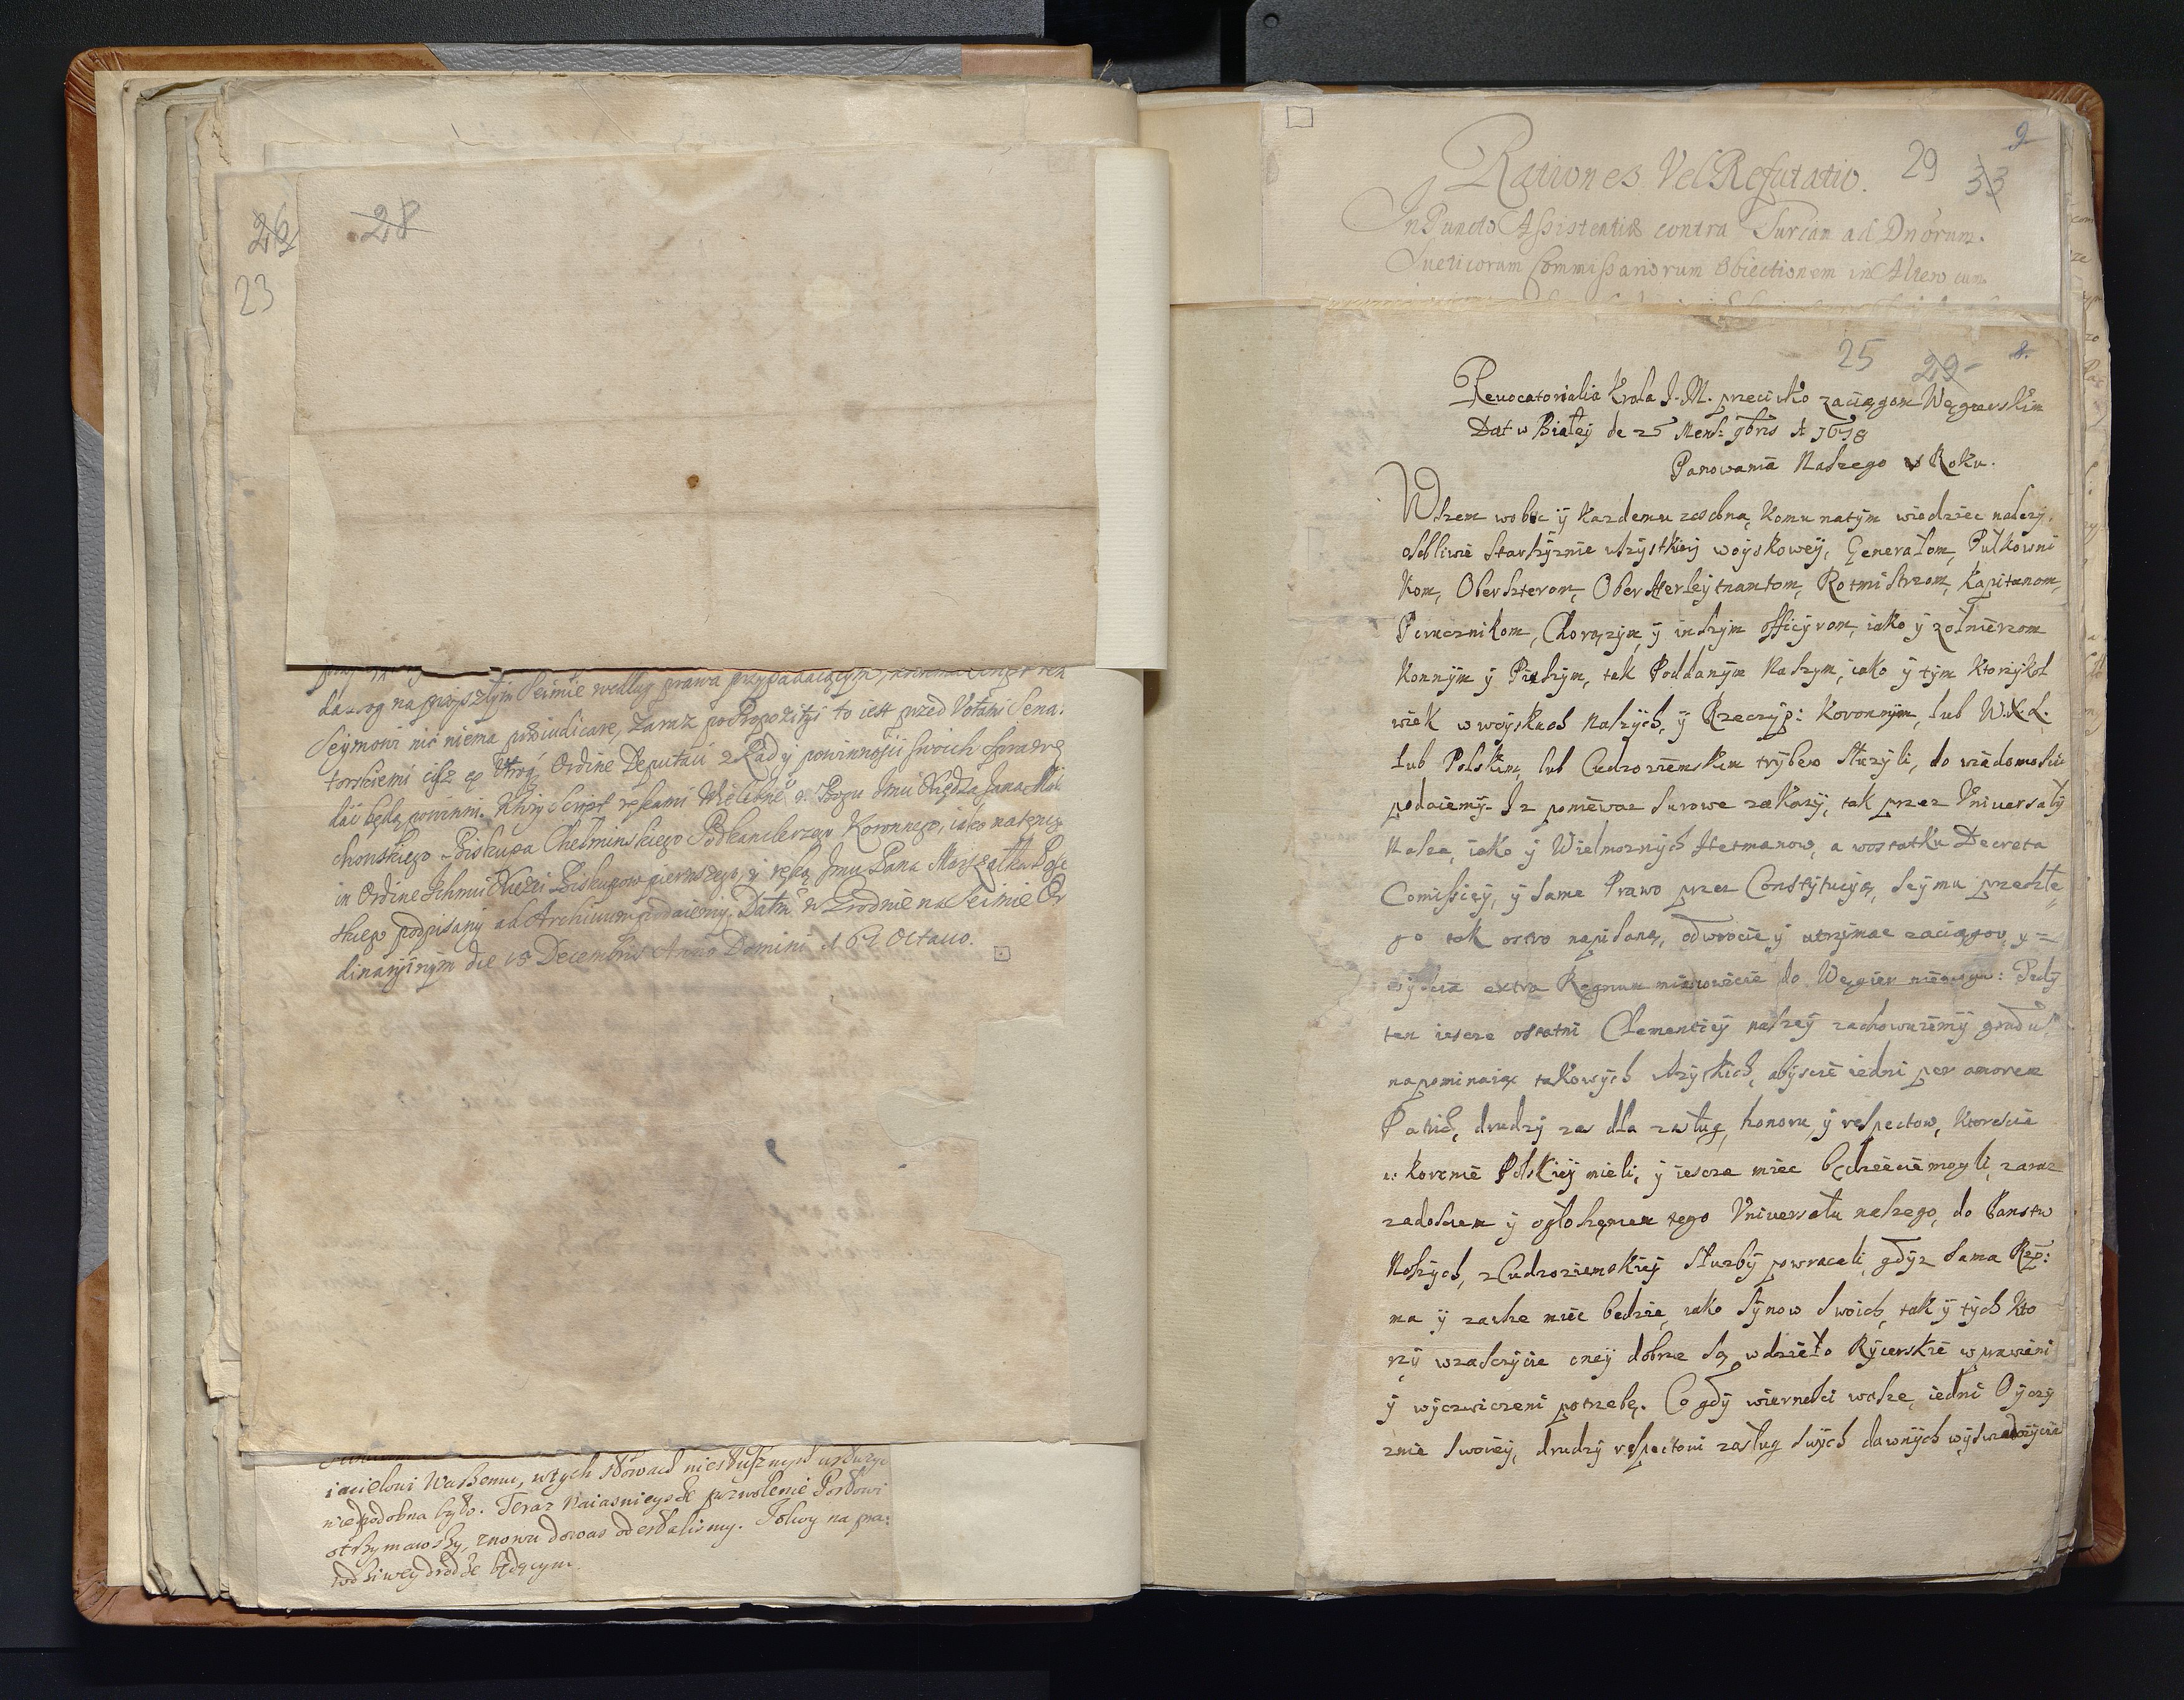 26
28
23
dazng na przyszłym Seimie według prawa przypadaiącym,
Seymowi nic niema praeiudicare, zaraz po Propozitÿi to iest przed Votami Sena:
torskiemi ciż ex Utroq Ordine Deputaci z Rad y powinnosci swoich sprawę
dać będą powinni. Ktory Script rękami Wielebne° w Bogu Jmci Xiędza Jana Mał
chowskiego Biskupa Chełminskiego Podkanclerzego Koronnego, iako na ten
in Ordine Ichmci Xięży Biskupow pierwszego, y ręką Jmci Pana Marszałka Posel
skiego podpisany ad Archiuum podaiemy. Datū w Grodnie na Seimie Or
dinaryinym die 15 Decembris Anno Domini 167 Octauo.
iacielowi Waszemu, w tych słowach niesłusznych usłuzyc
niepodobna było. Teraz Naiasnieysze pozwolenie Posłowi
otrzymawszy, znowu dowas odesłalismy. Tolwy na pra:
wdziwey drodze będącym.
9
Rationes Vel Refutatio. 29 33
In Puncto Assistentiæ contra Turcam ad Dnorum.
Sueticorum Commissariorum Obiectionem in Altero cum.
25 29 8.
Reuocatorialia Krola J. M. przeciwko zaciągom Węgierskim
Dat w Białey de 25 Mens: 9bris A 1678
Panowania Naszego V Roku.
Wszem wobec ÿ kazdemu zosobna, komu natÿm wiedziec nalezÿ,
osobliwie starszÿznie wszÿstkieÿ woÿskoweÿ, Generałom, Pułkowni
kom, Oberszterom, Obersterleÿtnantom, Rotmistrzom, Kapitanom,
Porucznikom, Chorązÿm, ÿ inszÿm officÿrom, iako ÿ zołnierzom
Konnÿm ÿ Pieszÿm, tak Poddanÿm Naszym, iako ÿ tÿm ktorzÿkol
wiek w woÿskach Naszÿch, ÿ Rzeczÿp: Koronnÿm, lub W.X.L.
lub Polskim, lub Cudzoziemskim trÿbem słuzÿli, do wiadomosci
podaiemÿ. Iz poniewaz surowe zakazÿ, tak przez Vniuersałÿ
Nasze, iako ÿ Wielmoznÿch Hetmanow, a wostatku Decreta
Comissieÿ, ÿ samo Prawo przez Constÿtucÿą, seÿmu przeszłe
go tak ostro napisaną, odwrocic ÿ utrzÿmac zaciągow, y
wÿscia extra Regnum mianowicie do Węgier niemogą: Tedÿ
ten iescze ostatni Clementieÿ naszeÿ zachowuiemÿ gradū,
napominaiąc takowÿch wszÿstkich, abÿscie iedni per amorem
Patriæ, drudzÿ zas dla zasług, honoru, ÿ respectow, ktorescie
w koronie Polskieÿ mieli, ÿ iescze miec będziecie mogli, zaraz
zadosciem ÿ ogłoszęniem tego Vniuersału naszego, do Panstw
Naszÿch, z Cudzoziemskieÿ słuzbÿ powracali, gdÿz sama Rzp:
ma ÿ zawsze miec bedzie, iako sÿnow swoich, tak ÿ tÿch kto
rzÿ wzasczÿcie oneÿ dobrze są w dzieło Rÿcerskie wprawieni
ÿ wÿcwiczeni potrzebę. Co gdÿ wiernosci wasze, iedni Oÿczÿ
znie swoieÿ, drudzÿ respectowi zasług swÿch dawnÿch wÿswiadczÿcie